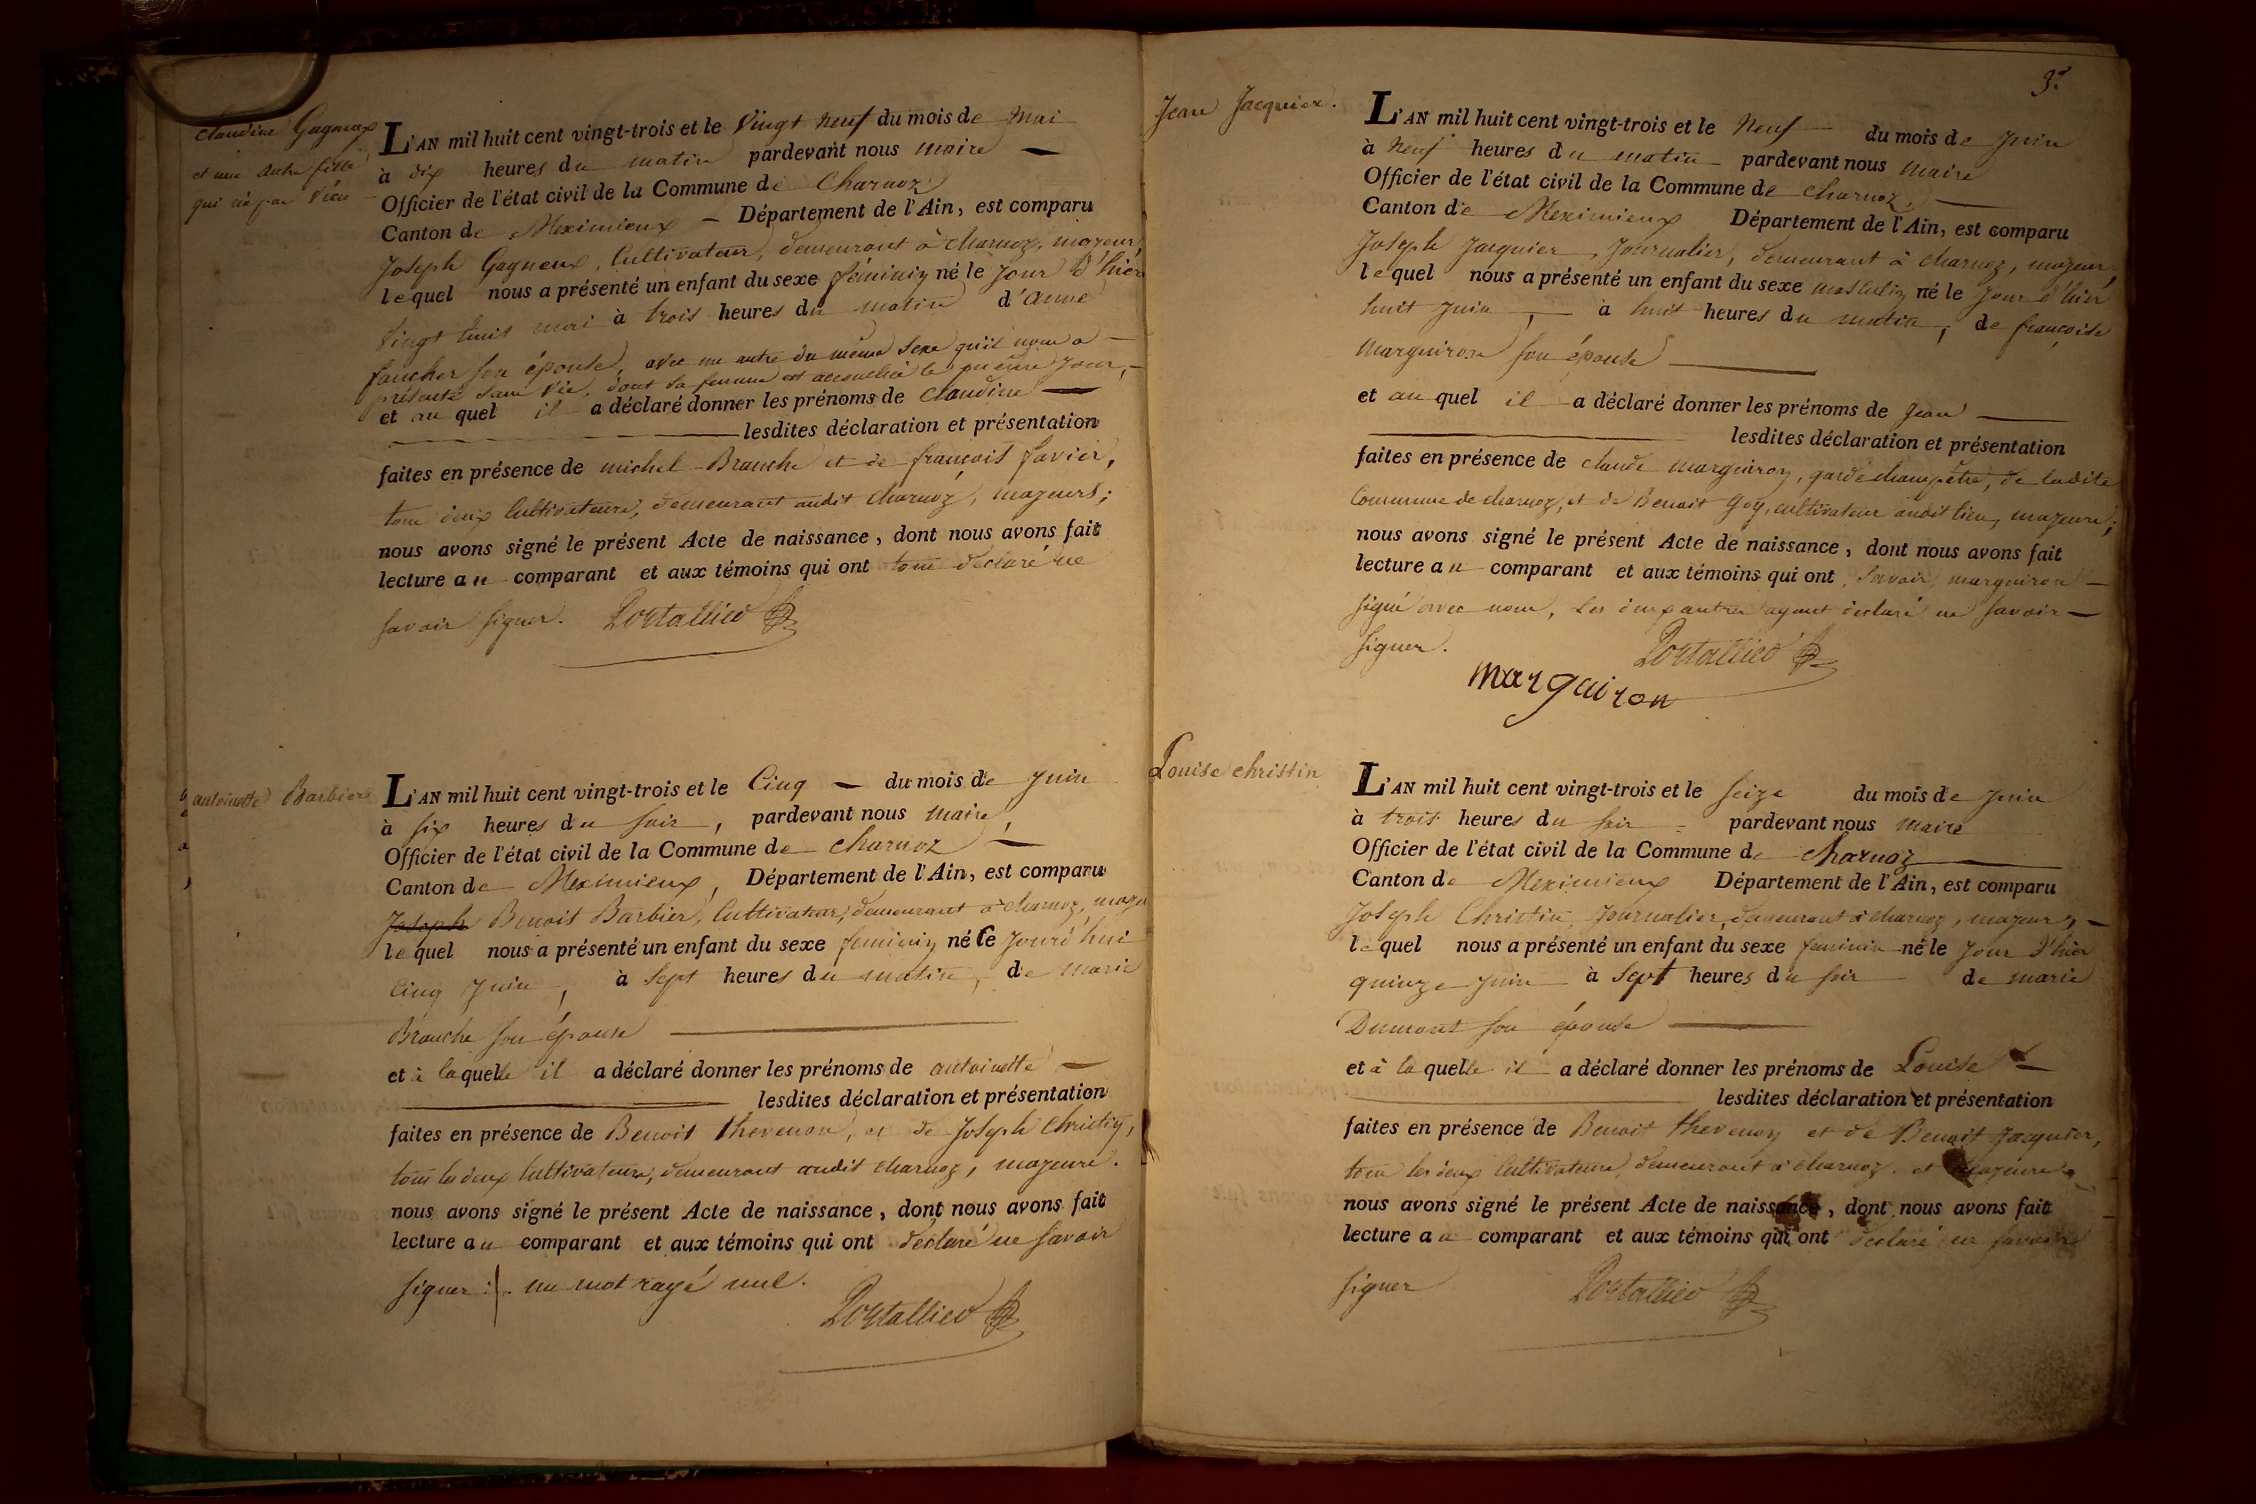 Claudine Gagneux
et une autre fille
qui n'a pas Vécu
L'AN mil huit cent vingt-trois et le Vingt neuf du mois de Mai
à dix heures du matin pardevant nous maire
Officier de l'état civil de la Commune de Charnoz
Canton de Meximieux Département de l'Ain, est comparu
Joseph Gagneux, Cultivateur, demeurant à charnoz, majeur,
lequel nous a présenté un enfant du sexe féminin né le Jour d'hier
Vingt huit mai à trois heures du matin d'anne
faucher son épouse, avec un autre du même sexe qu'il nous a
présenté sans Vie, dont sa femme est accouchée le même Jour,
et au quel il a déclaré donner les prénoms de Claudine
lesdites déclaration et présentation
faites en présence de michel Branche et de françois favier,
tous deux Cultivateurs, demeurant audit charnoz, majeurs;
nous avons signé le présent Acte de naissance, dont nous avons fait
lecture au comparant et aux témoins qui ont tous déclaré ne
savoir signer. Portallier
antoinette Barbier
L'AN mil huit cent vingt-trois et le Cinq du mois de Juin
à six heures du soir, pardevant nous maire,
Officier de l'état civil de la Commune de charnoz
Canton de Meximieux, Département de l'Ain, est comparu
Joseph Benoit Barbier, Cultivateur, demeurant à charnoz, maje
lequel nous a présenté un enfant du sexe feminin né le Jourd'hui
Cinq Juin, à sept heures du matin, de marie
Branche son épouse
et à laquelle il a déclaré donner les prénoms de antoinette
lesdites déclaration et présentation
faites en présence de Benoit thevenon, et de Joseph Christin,
tous les deux Cultivateurs, demeurant audit charnoz, majeurs.
nous avons signé le présent Acte de naissance, dont nous avons fait
lecture au comparant et aux témoins qui ont déclaré ne savoir
signer :/. un mot rayé nul.
Portallier
3.
Jean Jacquier.
L'AN mil huit cent vingt-trois et le Neuf du mois de Juin
à Neuf heures du matin pardevant nous maire
Officier de l'état civil de la Commune de charnoz,
Canton de Meximieux Département de l'Ain, est comparu
Joseph Jacquier, Journalier, demeurant à charnoz, majeur,
lequel nous a présenté un enfant du sexe masculin né le Jour d'hier
huit Juin, à huit heures du matin, de françoise
Marguiron son épouse
et au quel il a déclaré donner les prénoms de Jean
lesdites déclaration et présentation
faites en présence de claude marguiron, garde champêtre, de ladite
Commune de charnoz, et de Benoit Goy, cultivateur audit lieu, majeurs;
nous avons signé le présent Acte de naissance, dont nous avons fait
lecture au comparant et aux témoins qui ont, savoir, marguiron
signé avec nous, les deux autres ayant déclaré ne savoir
signer. Portallier
Marguiron
Louise christin
L'AN mil huit cent vingt-trois et le seize du mois de Juin
à trois heures du soir pardevant nous maire
Officier de l'état civil de la Commune de charnoz
Canton de Meximieux Département de l'Ain, est comparu
Joseph Christin, Journalier, demeurant à charnoz, majeur,
lequel nous a présenté un enfant du sexe feminin né le Jour d'hier
quinze Juin à sept heures du soir de marie
Dumont son épouse
et à la quelle il a déclaré donner les prénoms de Louise
lesdites déclaration et présentation
faites en présence de Benoit thevenon et de Benoit Jacquier,
tous les deux Cultivateurs, demeurant à charnoz. et majeurs
nous avons signé le présent Acte de naissance, dont nous avons fait
lecture au comparant et aux témoins qui ont déclaré ne savoir
signer Portallier